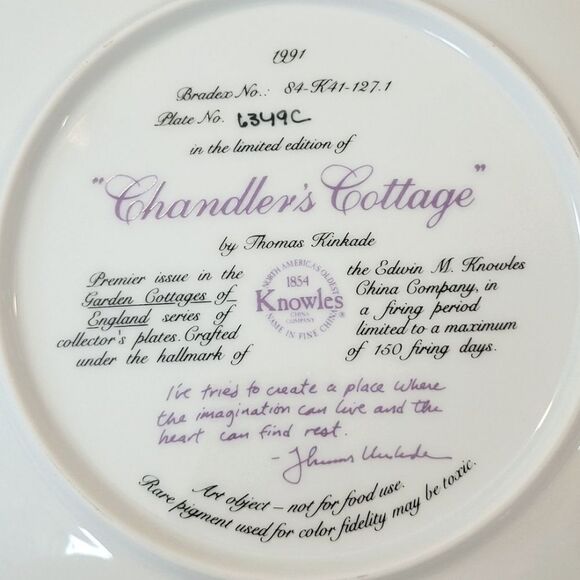 1991
Bradex No.: 84-K41-127.1
Plate No. 6349C
in the limited edition of
"Chandler's Cottage"
by Thomas Kinkade
Premier issue in the
Garden Cottages of
England series of
collector's plates. Crafted
under the hallmark of
NORTH AMERICA'S OLDEST
1854
Knowles
CHINA
COMPANY
NAME IN FINE CHINA
®
the Edwin M. Knowles
China Company, in
a firing period
limited to a maximum
of 150 firing days.
I've tried to create a place where
the imagination can live and the
heart can find rest.
- Thomas Kinkade
Art object – not for food use.
Rare pigment used for color fidelity may be toxic.